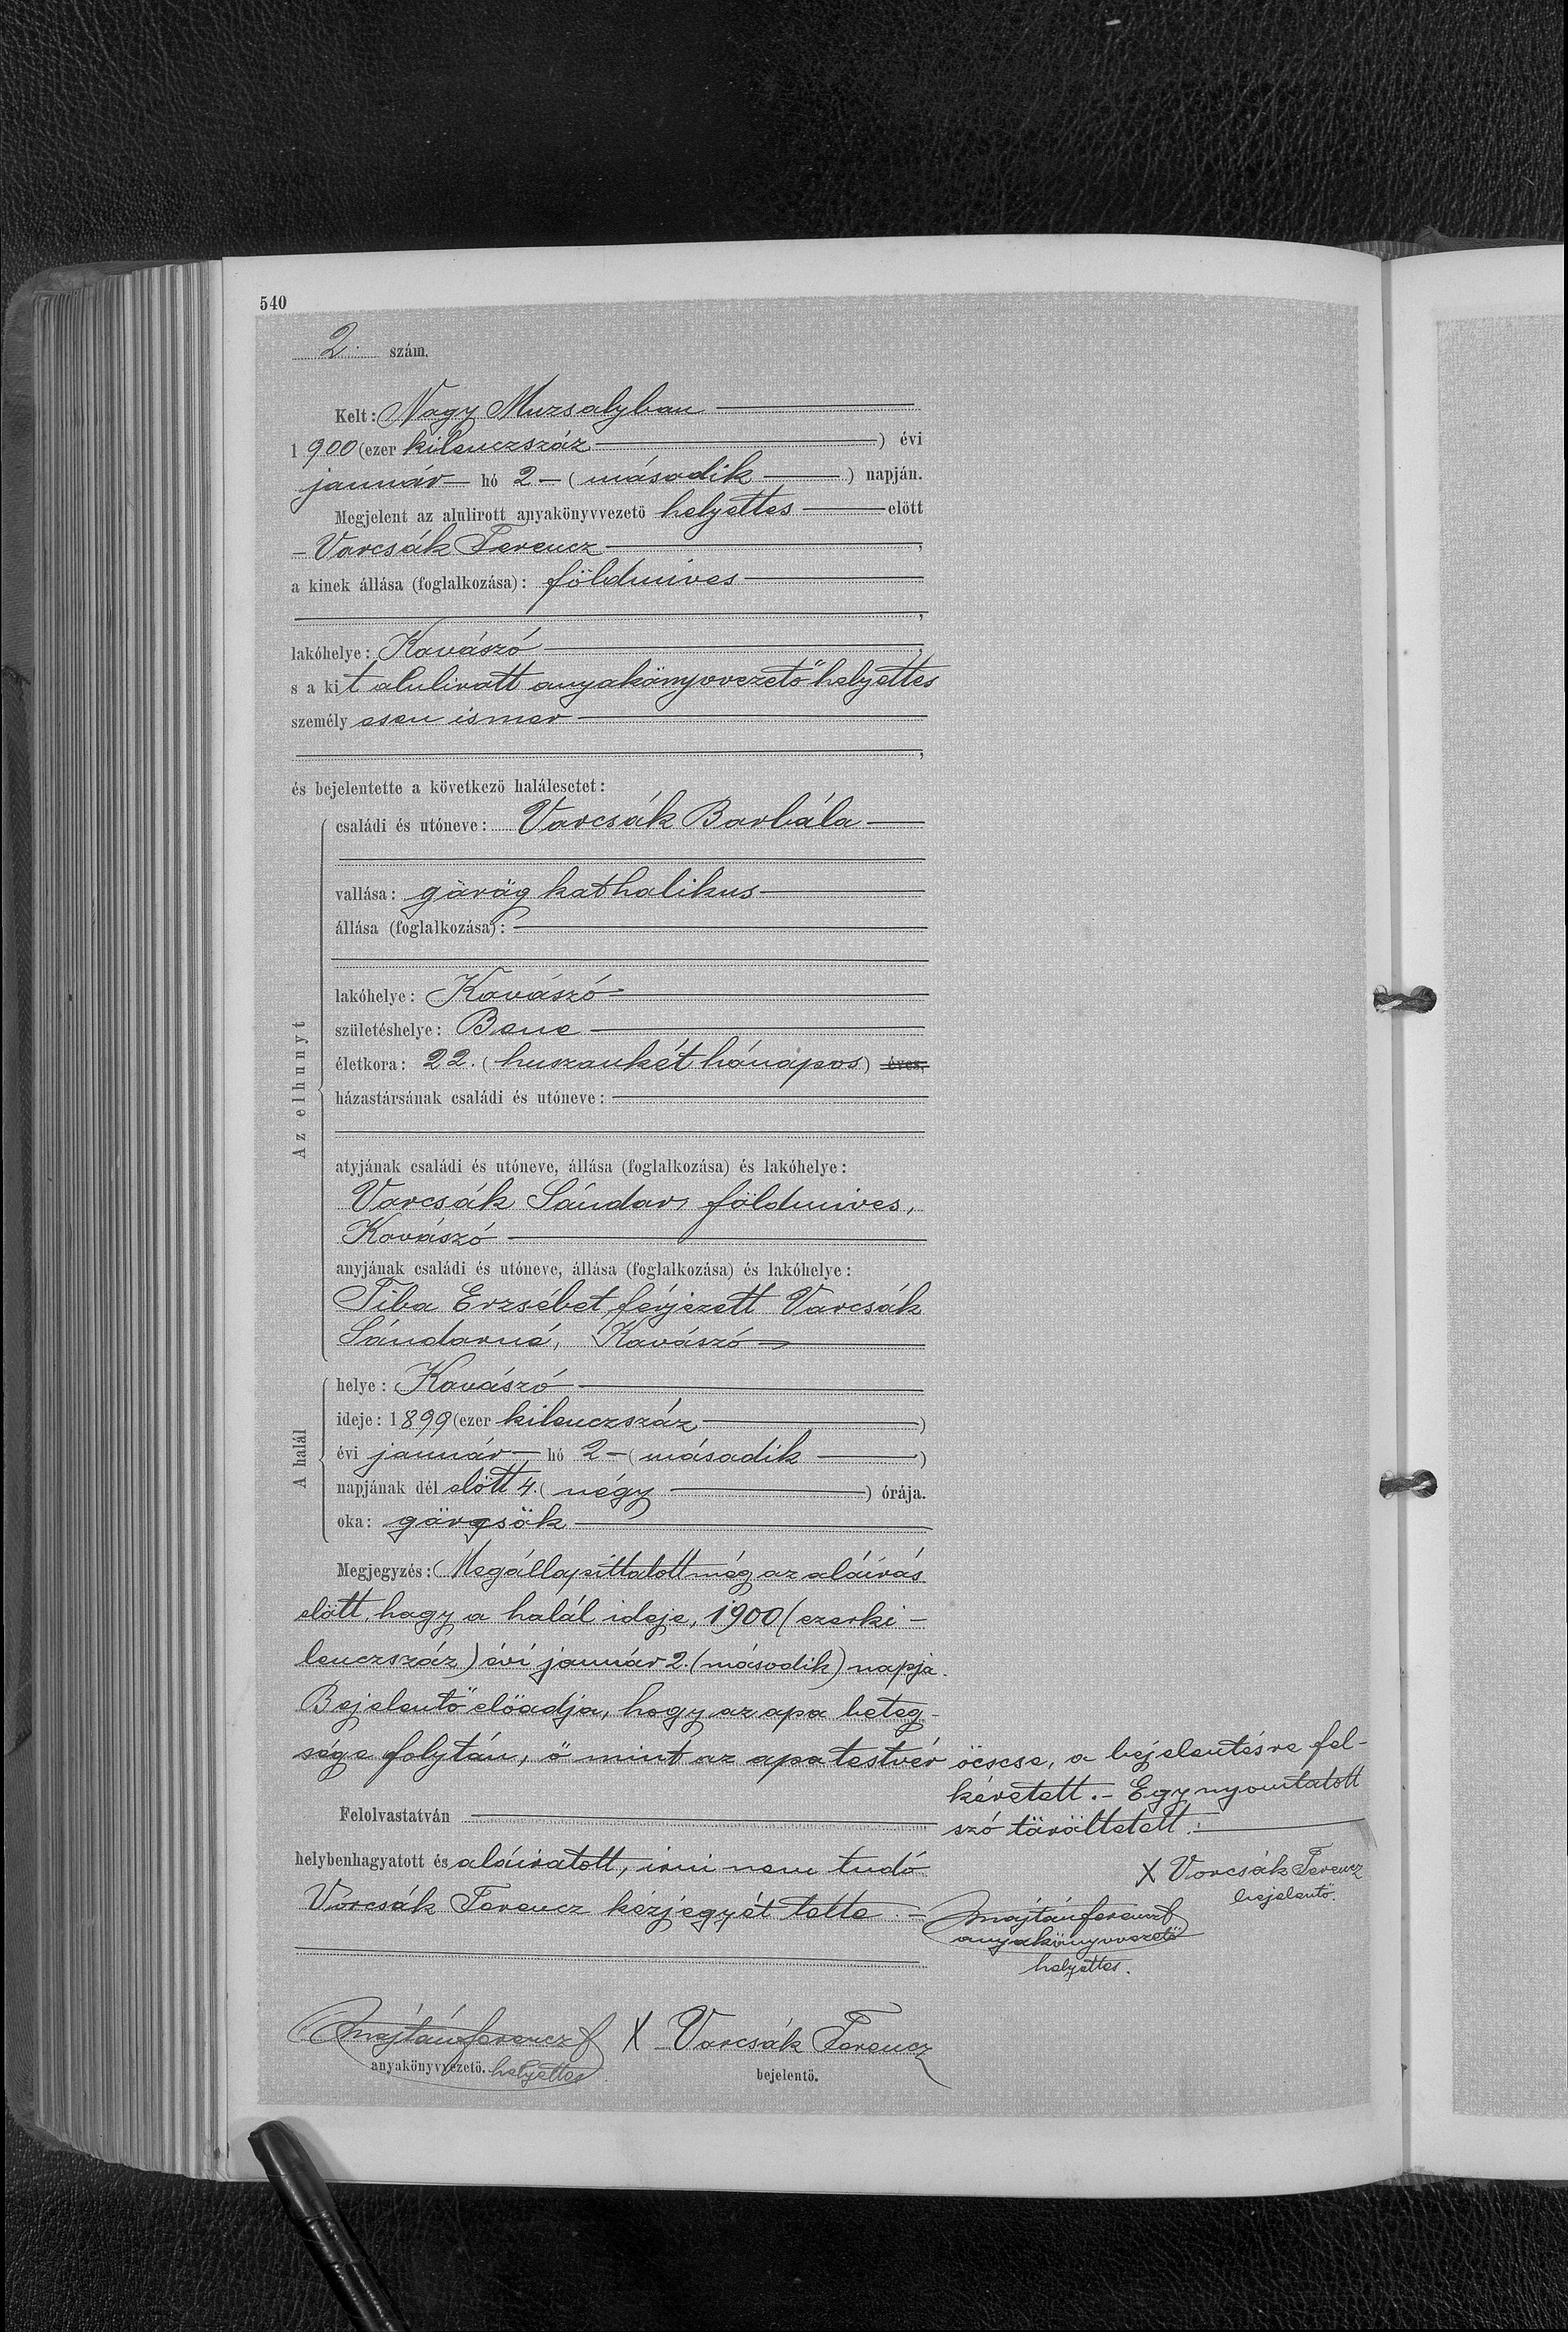 540
2. szám.
Kelt: Nagy Muzsalyban
1900 (ezer kilenczszáz) évi
január hó 2 (második) napján.
Megjelent az alulirott anyakönyvvezető helyettes előtt
Varcsák Ferencz,
a kinek állása (foglalkozása): földmives
,
lakóhelye: Kovászó,
s a kit alulirott anyakönyvvezető helyettes
személyesen ismer
,
és bejelentette a következő halálesetet:
Az elhunyt
családi és utóneve: Varcsák Borbála
vallása: görög katholikus
állása (foglalkozása):
lakóhelye: Kovászó
születéshelye: Bene
életkora: 22. (huszonkét hónapos) éves,
házastársának családi és utóneve:
atyjának családi és utóneve, állása (foglalkozása) és lakóhelye:
Varcsák Sándor, földmives,
Kovászó
anyjának családi és utóneve, állása (foglalkozása) és lakóhelye:
Tiba Erzsébet férjezett Varcsák
Sándorné, Kovászó
A halál
helye: Kovászó
ideje: 1899 (ezer kilenczszáz)
évi január hó 2 (második)
napjának dél előtt 4. (négy) órája.
oka: görcsök
Megjegyzés: Megállapittatott még az aláirás
előtt, hogy a halál ideje, 1900 (ezerki-
lenczszáz) évi január 2. (második) napja.
Bejelentő előadja, hogy az apa beteg-
sége folytán, ő mint az apa testvér öcscse, a bejelentésre fel-
kéretett. - Egy nyomtatott
szó töröltetett.
Felolvastatván
X Varcsák Ferencz
bejelentő.
helybenhagyatott és aláiratott, irni nem tudó
Varcsák Ferencz kézjegyét tette
Majtán Ferencz
anyakönyvvezető
helyettes.
Majtán Ferencz X Varcsák Ferencz
anyakönyvvezető. helyettes bejelentő.